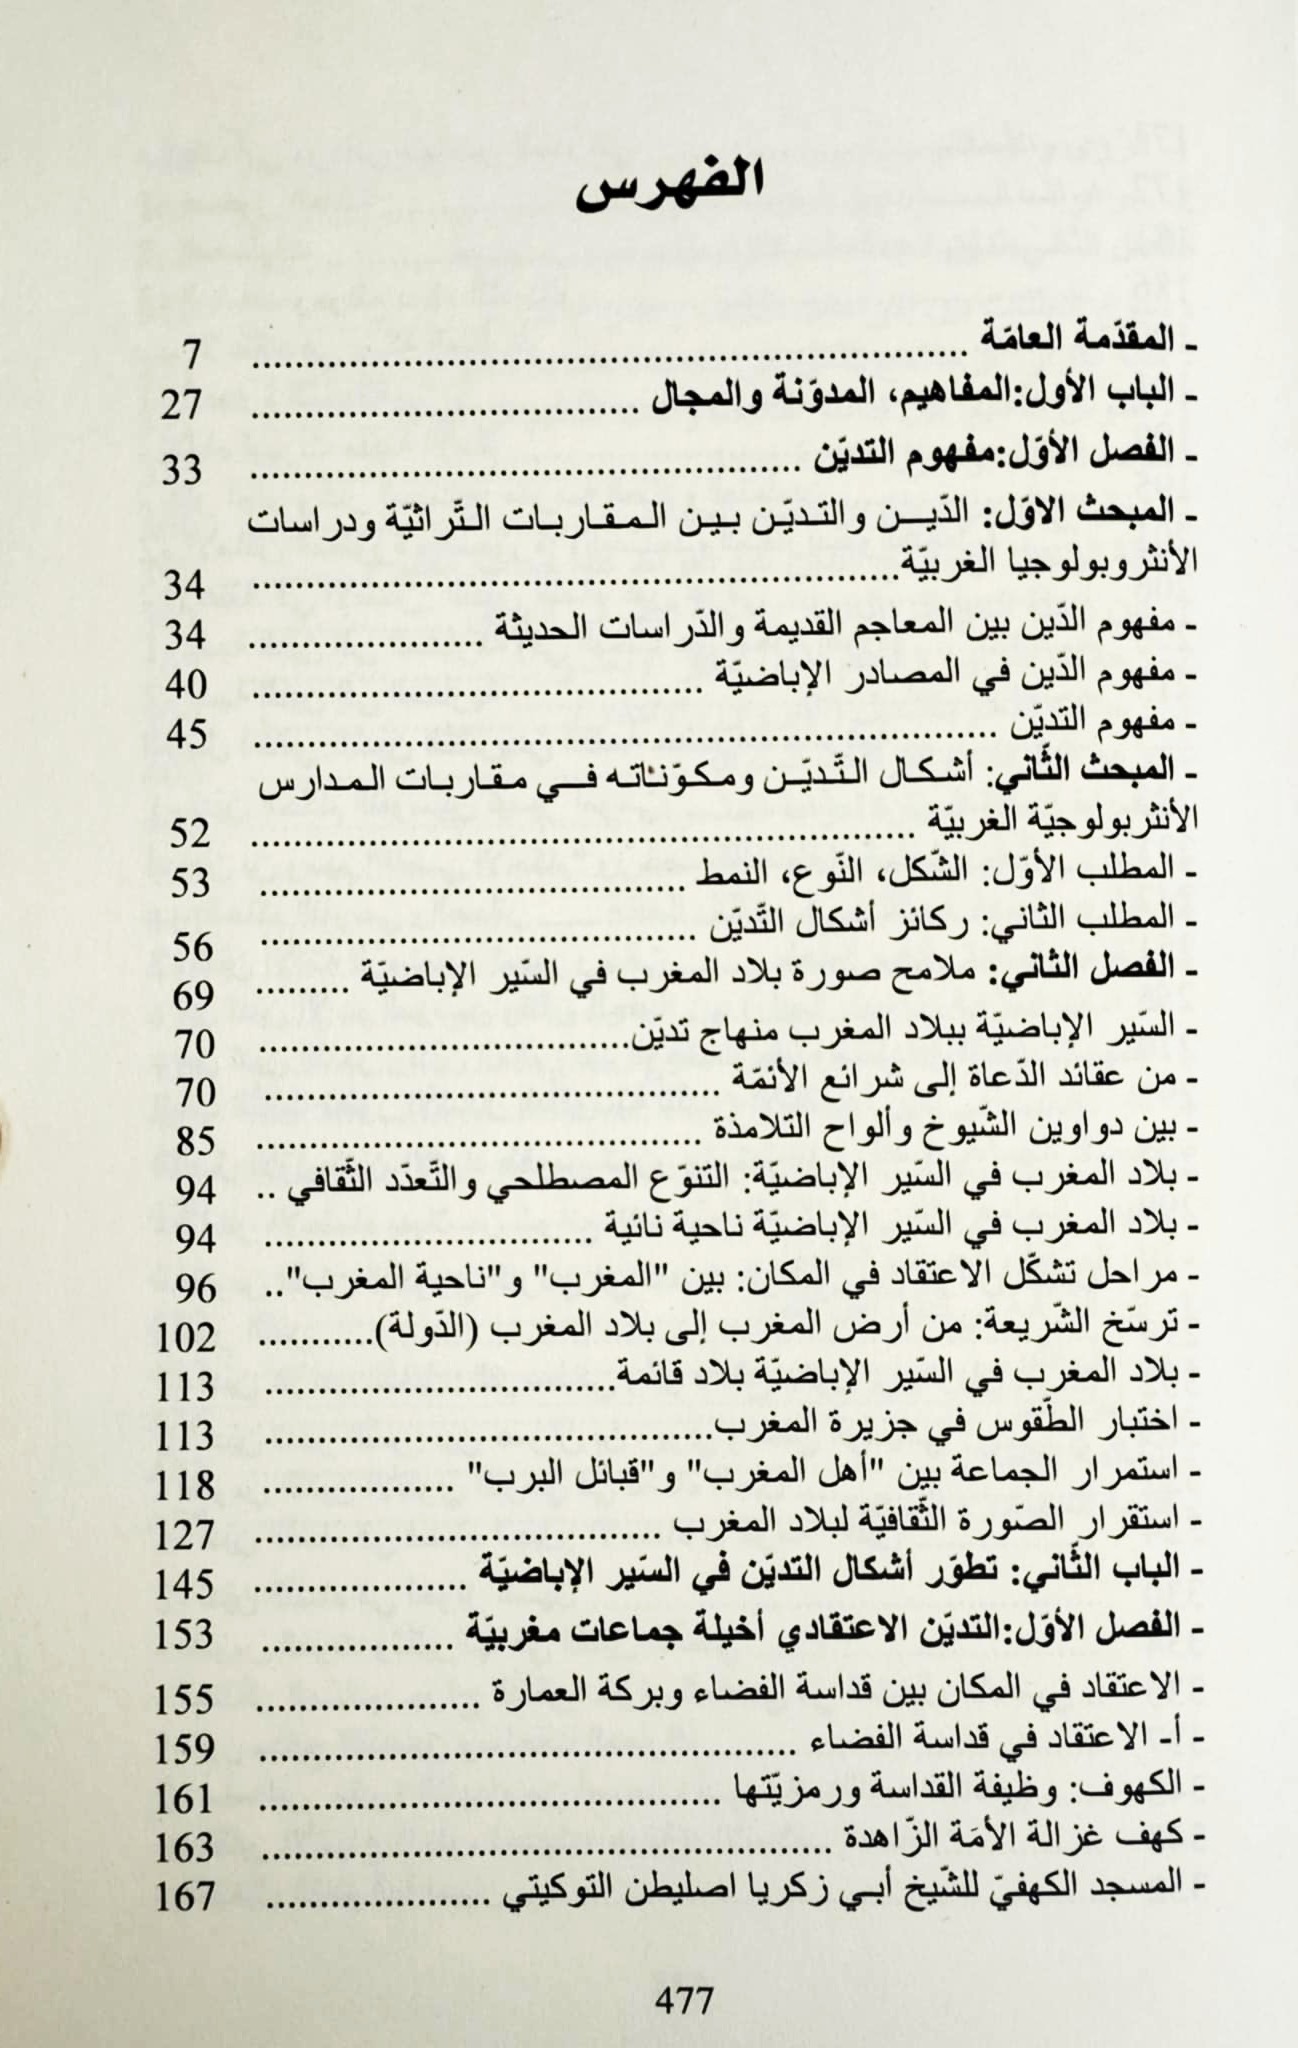 الفهرس
- المقدّمة العامّة ........................................ 7
- الباب الأول:المفاهيم، المدوّنة والمجال ........................................ 27
- الفصل الأوّل:مفهوم التديّن ........................................ 33
- المبحث الاوّل: الدّيـــن والتديّـن بـيـن الـمـقـاربـات التّراثيّة ودراسات
الأنثروبولوجيا الغربيّة........................................ 34
- مفهوم الدّين بين المعاجم القديمة والدّراسات الحديثة ........................ 34
- مفهوم الدّين في المصادر الإباضيّة ........................................ 40
- مفهوم التديّن ........................................ 45
- المبحث الثّاني: أشكـال التّـديّـن ومكـوّناتـه فـــي مـقـاربـات الـمـدارس
الأنثربولوجيّة الغربيّة ........................................ 52
- المطلب الأوّل: الشّكل، النّوع، النمط ........................................ 53
- المطلب الثاني: ركائز أشكال التّديّن ........................................ 56
- الفصل الثاني: ملامح صورة بلاد المغرب في السّير الإباضيّة ......... 69
- السّير الإباضيّة ببلاد المغرب منهاج تديّن........................................ 70
- من عقائد الدّعاة إلى شرائع الأئمّة ........................................ 70
- بين دواوين الشّيوخ وألواح التلامذة ........................................ 85
- بلاد المغرب في السّير الإباضيّة: التنوّع المصطلحي والتّعدّد الثّقافي .. 94
- بلاد المغرب في السّير الإباضيّة ناحية نائية ................................ 94
- مراحل تشكّل الاعتقاد في المكان: بين "المغرب" و"ناحية المغرب".. 96
- ترسّخ الشّريعة: من أرض المغرب إلى بلاد المغرب (الدّولة)........... 102
- بلاد المغرب في السّير الإباضيّة بلاد قائمة................................ 113
- اختبار الطّقوس في جزيرة المغرب........................................ 113
- استمرار الجماعة بين "أهل المغرب" و"قبائل البرب" .................. 118
- استقرار الصّورة الثّقافيّة لبلاد المغرب ........................................ 127
- الباب الثّاني: تطوّر أشكال التديّن في السّير الإباضيّة .................... 145
- الفصل الأوّل:التديّن الاعتقادي أخيلة جماعات مغربيّة .................. 153
- الاعتقاد في المكان بين قداسة الفضاء وبركة العمارة ..................... 155
- أ- الاعتقاد في قداسة الفضاء ........................................ 159
- الكهوف: وظيفة القداسة ورمزيّتها ........................................ 161
- كهف غزالة الأمَة الزّاهدة ........................................ 163
- المسجد الكهفيّ للشّيخ أبي زكريا اصليطن التوكيتي ..................... 167
477